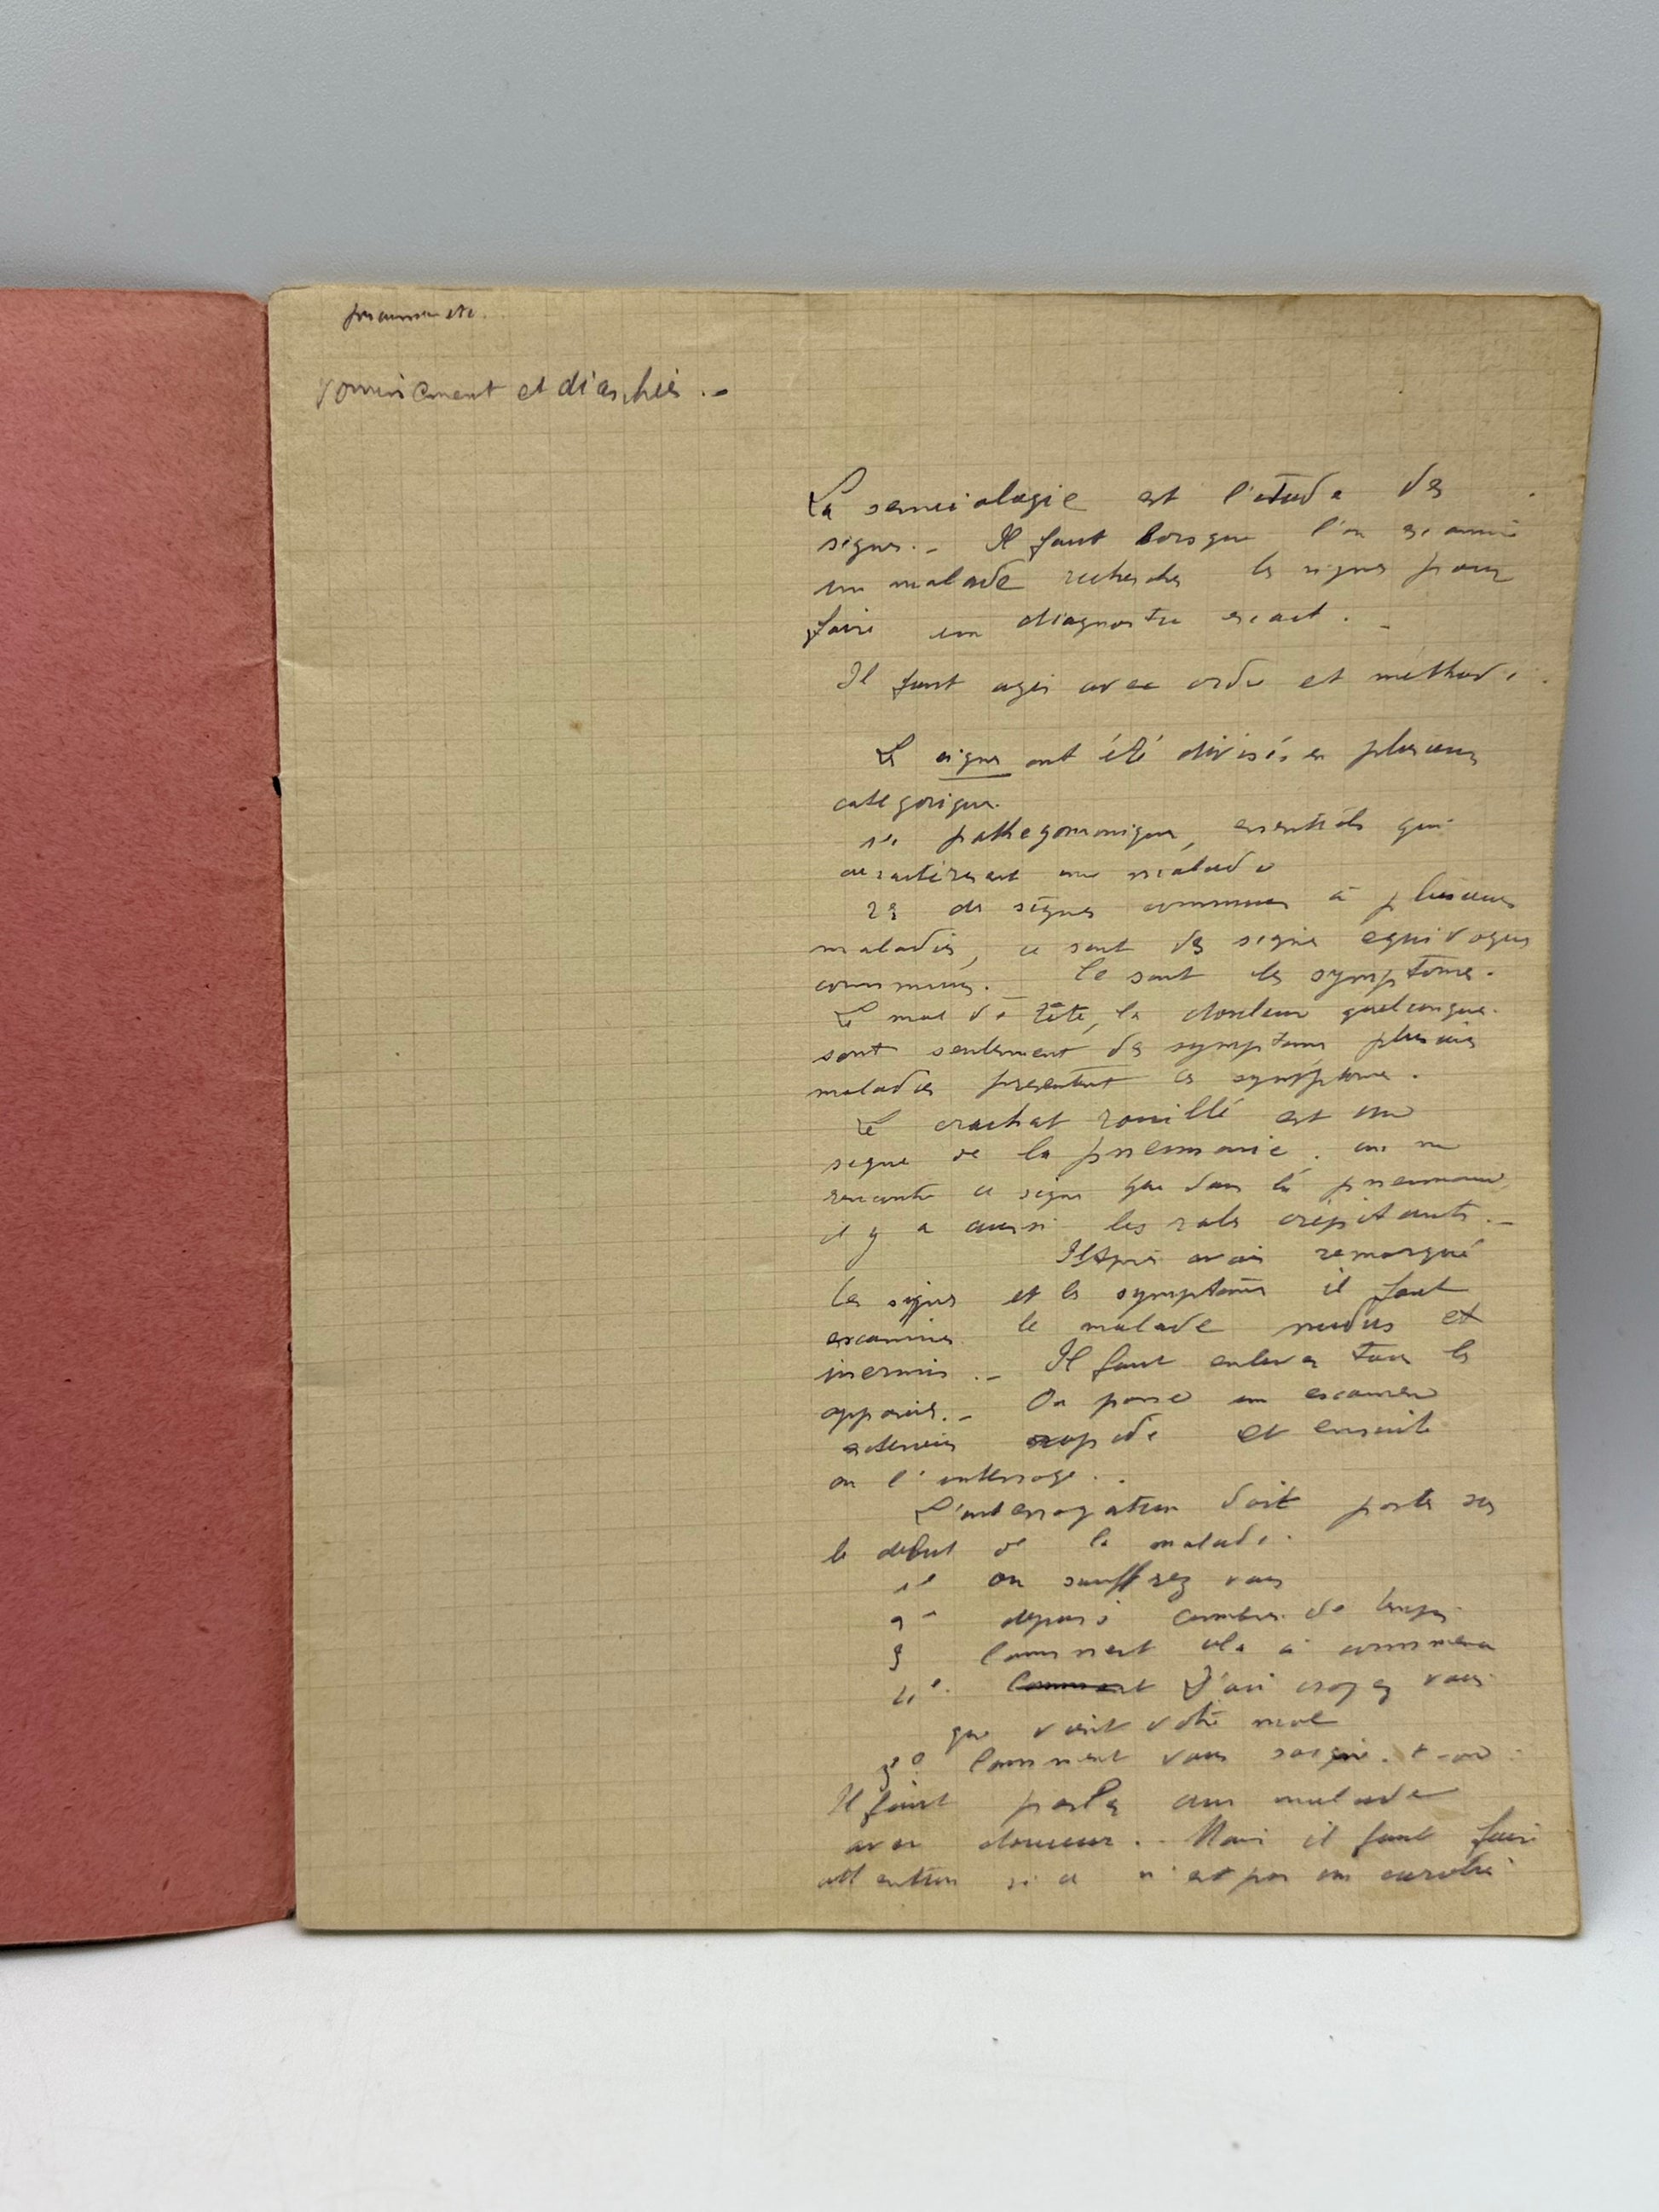 vomissement et diarrhée. -
La semiologie est l'étude des
signes. - Il faut lorsque l'on examine
un malade rechercher les signes pour
faire un diagnostic exact. -
Il faut agir avec ordre et méthode.
Les signes ont été divisés en plusieurs
categorique.
1er pathegomonique, essentiels qui
caractérisent une maladie
2e des signes communs à plusieurs
maladies, ce sont des signes equivoques
communs. Ce sont les symptomes.
Le mal de tête, la douleur quelconque.
sont seulement des symptomes plusieurs
maladies presentent ces symptomes.
Le crachat rouillé est un
signe de la pneumonie. on ne
rencontre ce signe que dans la pneumonie
il y a aussi les rales crépitants. -
Après avoir remarqué
les signes et les symptomes il faut
examiner le malade nudus et
inermis. - Il faut enlever tous les
appareils. - On passe un examen
exterieur rapide et ensuite
on l'interroge. .
L'interrogation doit porter sur
le debut de la maladie.
1° ou souffrez vous
2° depuis combien de temps
3 Comment cela à commencé
4°. Comment D'ou croyez vous
que vient votre mal
5° Comment vous soigne-t-on.
Il faut parler au malade
avec douceur. - Mais il faut faire
attention si ce n'est pas un